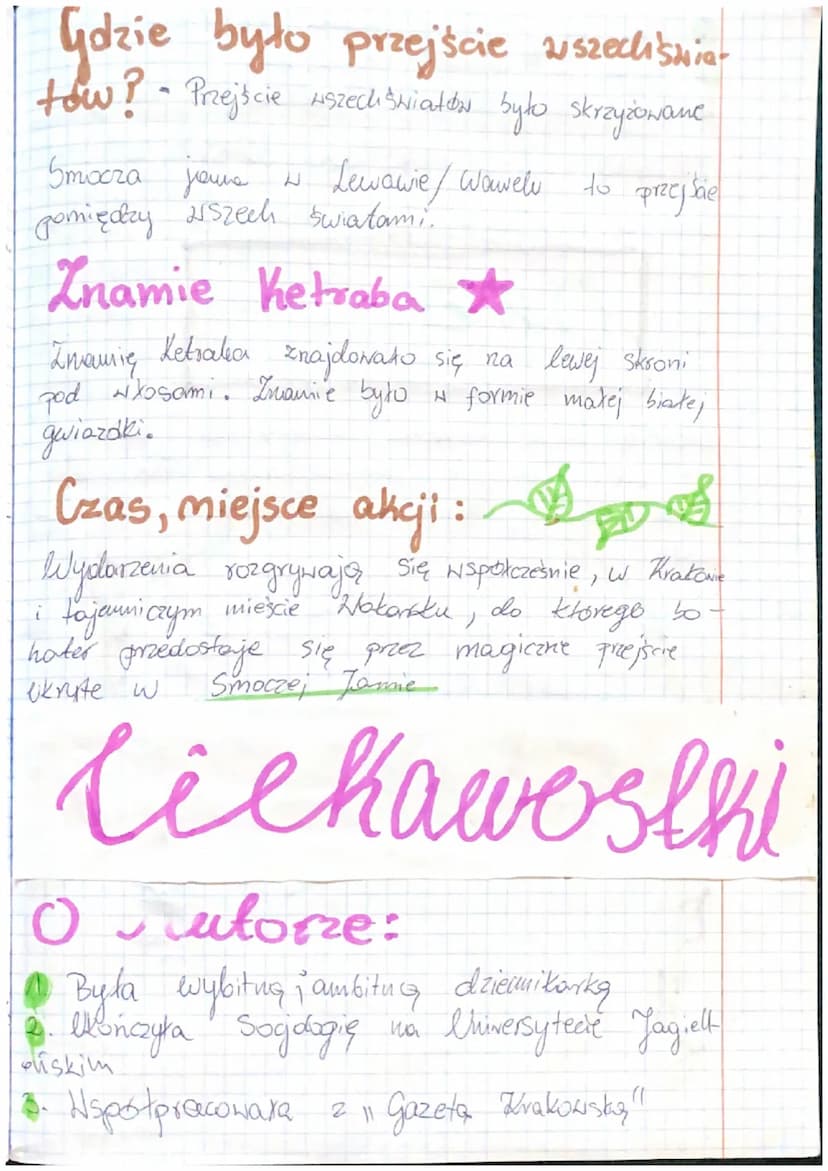 Gdzie było przejście wszechświa-
tów? - Przejście wszechświatów było skrzyżowane
Smocza jama w Lewawie/Wawelu to przejście
pomiędzy wszech światami.
Znamie Ketraba
Znamię Ketraba znajdowało się na lewej skroni
pod włosami. Znamie było w formie małej białej
gwiazdki.
Czas, miejsce akcji:
Wydarzenia rozgrywają się współcześnie, w Krakowie
i tajemniczym mieście Wokarku, do którego bo-
hater przedostaje się przez magiczne przejście
ukryte w Smoczej Jamie
Ciekawostki
O Autorze:
1. Była wybitną i ambitną dziennikarką
2. Ukończyła Socjologię na Uniwersytecie Jagiell-
ońskim
3. Współpracowała z "Gazetą Krakowską"